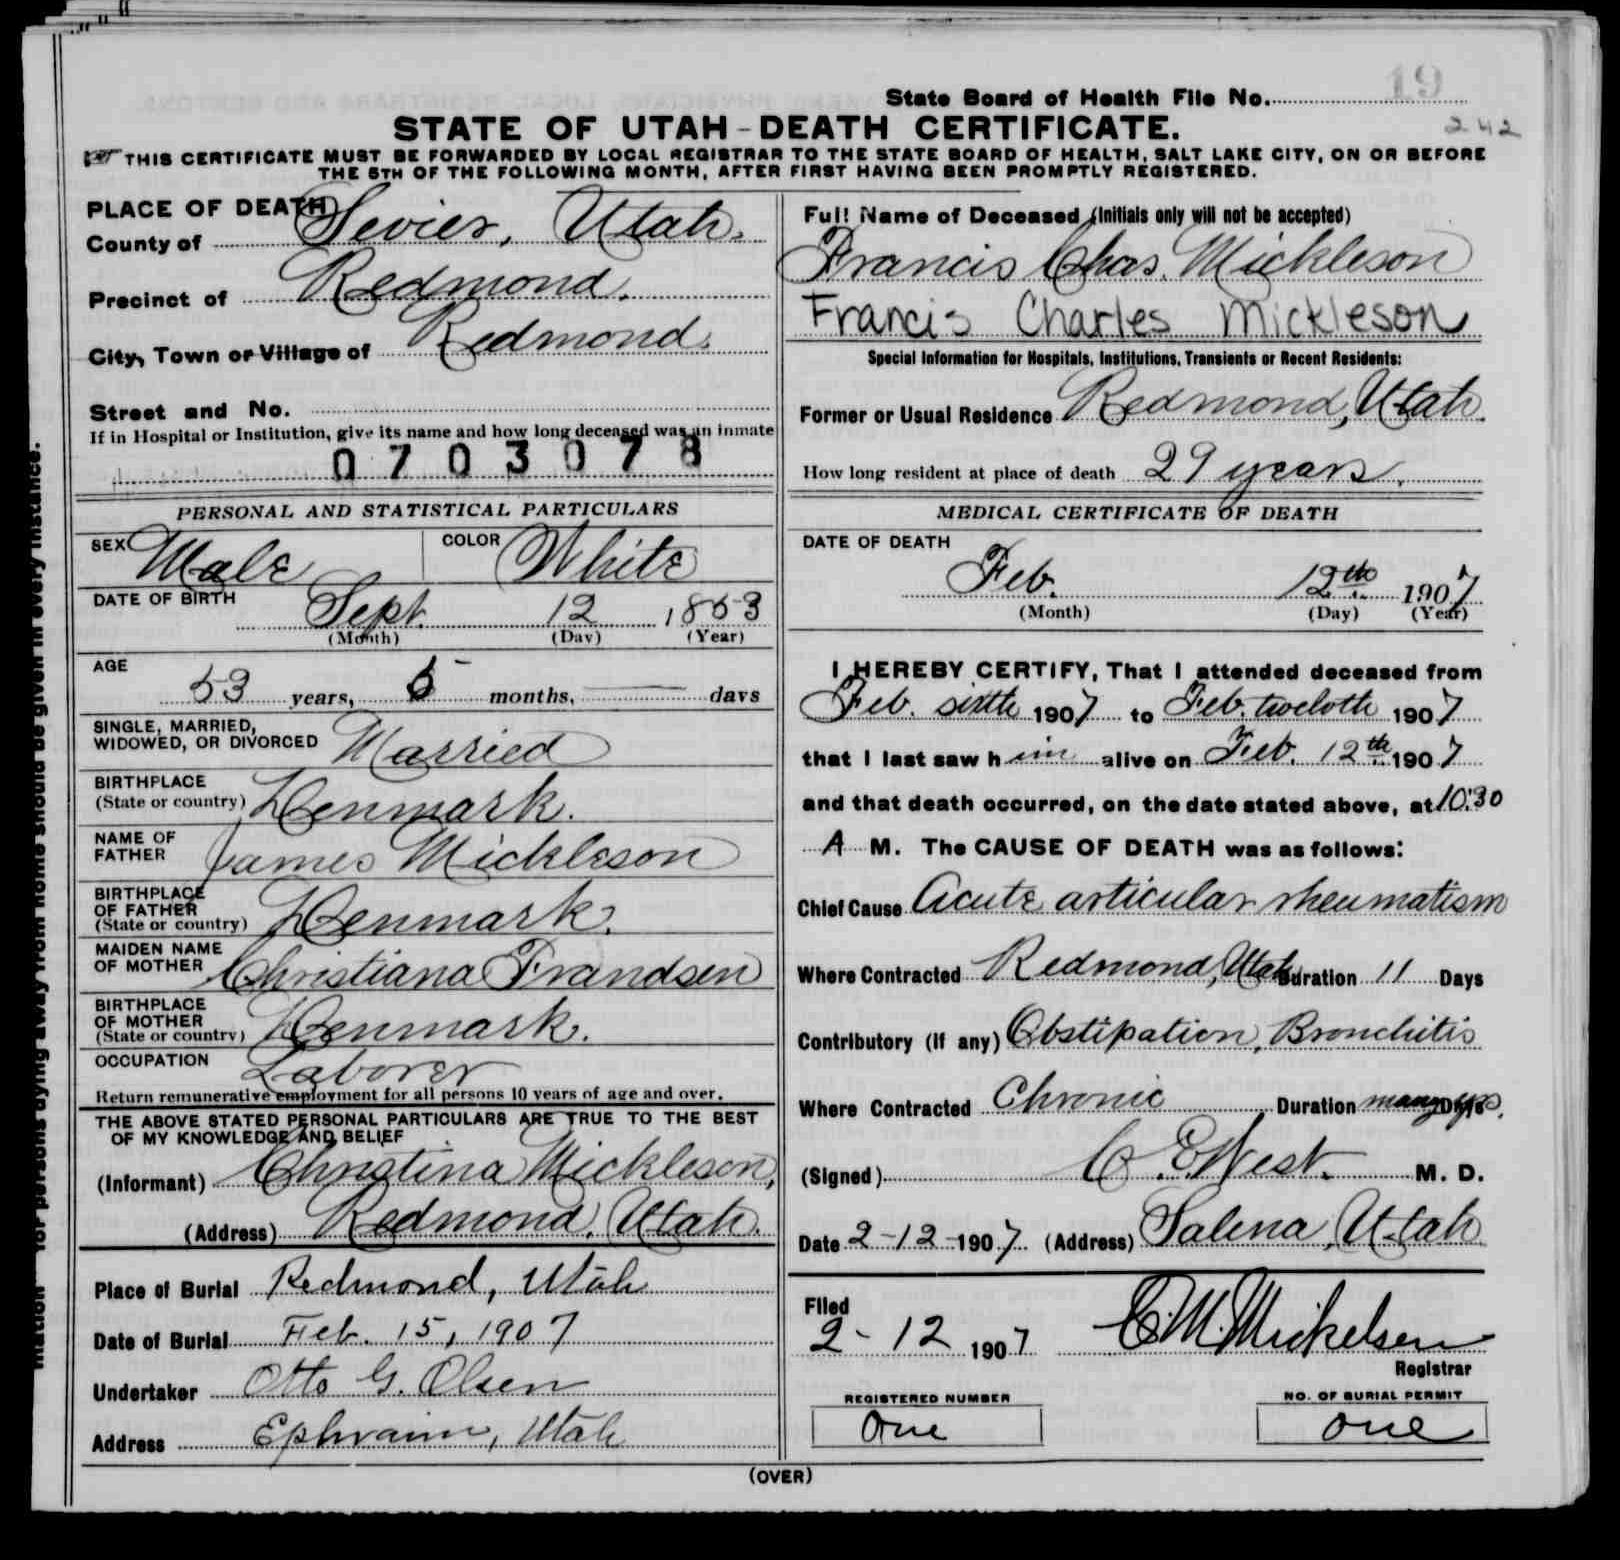 19
State Board of Health File No.
242
STATE OF UTAH - DEATH CERTIFICATE.
THIS CERTIFICATE MUST BE FORWARDED BY LOCAL REGISTRAR TO THE STATE BOARD OF HEALTH, SALT LAKE CITY, ON OR BEFORE
THE 5TH OF THE FOLLOWING MONTH, AFTER FIRST HAVING BEEN PROMPTLY REGISTERED.
PLACE OF DEATH
County of Sevier, Utah.
Precinct of Redmond.
City, Town or Village of Redmond.
Street and No.
If in Hospital or Institution, give its name and how long deceased was an inmate
0703078
PERSONAL AND STATISTICAL PARTICULARS
SEX Male COLOR White
DATE OF BIRTH
Sept. 12 1853
(Month) (Day) (Year)
AGE
53 years, 5 months, — days
SINGLE, MARRIED,
WIDOWED, OR DIVORCED Married
BIRTHPLACE
(State or country) Denmark.
NAME OF
FATHER James Mickleson
BIRTHPLACE
OF FATHER
(State or country) Denmark.
MAIDEN NAME
OF MOTHER Christiana Frandsen
BIRTHPLACE
OF MOTHER
(State or country) Denmark.
OCCUPATION Laborer
Return remunerative employment for all persons 10 years of age and over.
THE ABOVE STATED PERSONAL PARTICULARS ARE TRUE TO THE BEST
OF MY KNOWLEDGE AND BELIEF
(Informant) Christina Mickleson,
(Address) Redmond, Utah.
Place of Burial Redmond, Utah
Date of Burial Feb. 15, 1907
Undertaker Otto G. Olsen
Address Ephraim, Utah
Full Name of Deceased (Initials only will not be accepted)
Francis Chas. Mickleson
Francis Charles Mickleson
Special Information for Hospitals, Institutions, Transients or Recent Residents:
Former or Usual Residence Redmond, Utah.
How long resident at place of death 29 years.
MEDICAL CERTIFICATE OF DEATH
DATE OF DEATH
Feb. 12th 1907
(Month) (Day) (Year)
I HEREBY CERTIFY, That I attended deceased from
Feb. sixth 1907 to Feb. twelvth 1907
that I last saw him alive on Feb. 12th 1907
and that death occurred, on the date stated above, at 10:30
A M. The CAUSE OF DEATH was as follows:
Chief Cause Acute articular rheumatism
Where Contracted Redmond, Utah Duration 11 Days
Contributory (If any) Obstipation, Bronchitis
Where Contracted Chronic Duration many yrs. Days
(Signed) C. E West. M. D.
Date 2-12-1907 (Address) Salina, Utah
Filed
2-12 1907 C. M. Mickelsen
Registrar
REGISTERED NUMBER NO. OF BURIAL PERMIT
One one
(OVER)